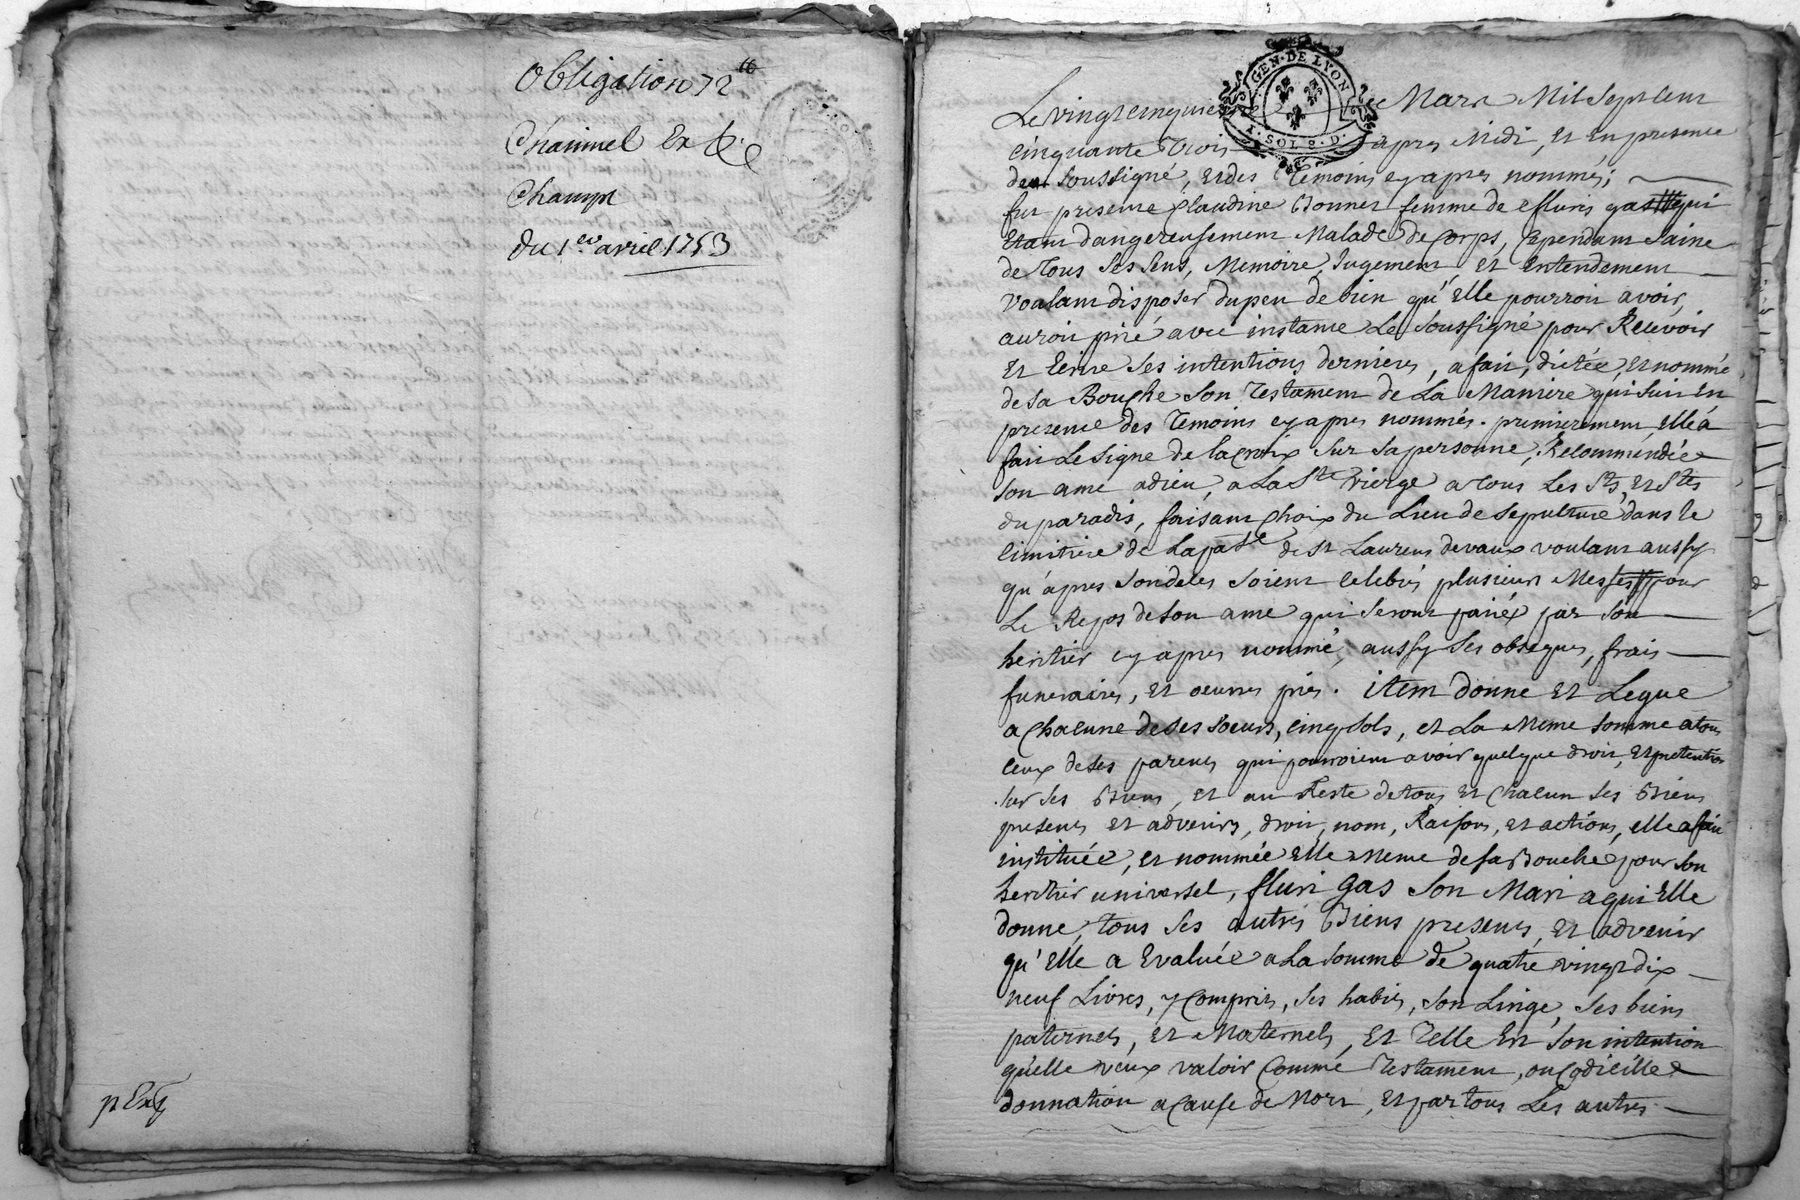 Obligation 72 ₶
Chaumel
Champt
Du 1er avril 1753
p Ext
GEN. DE LYON
1. SOL 8. D.
Le vingt cinquieme Mars Mil Sept Cent
Cinquante Trois apres Midi, Et En presence
du Soussigné, Et des Temoins cy apres nommés;
fut presente Claudine Bonnet femme de flury gas qui
Etant dangereusement Malade de Corps, Cependant Saine
de Tous Ses Sens, Memoire, Jugement, Et Entendement
Voalant disposer du peu de bien qu'Elle pourroit avoir,
auroit prié avec instance Le Soussigné pour Recevoir
Et Ecrire Ses intentions dernieres, a fait, dictée, Et nommé
de Sa Bouche Son Testament de La Maniere qui Suit En
presence des Temoins cy apres nommés. premierement Elle a
fait Le Signe de la Croix Sur Sa personne, Recommendée
Son ame a dieu, a La Ste Vierge a tous Les Sts, Et Stes
du paradis, faisant Choix du Lieu de Sepulture dans le
Cimitiere de La pasSe de St Laurens de vaux voulant aussy
qu'apres Son deces Soient Celebrés plusieurs Messes pour
Le Repos de Son ame qui Seront paiées par Son
heritier cy apres nommé, aussy Ses obseques, frais
funeraires, Et oeuvres pies. item Donne Et Legue
a Chacune de Ses Soeurs, Cinq Sols, et La Meme Somme a tous
Ceux de Ses parents qui pourroient avoir quelque droit, Et pretention
Sur Ses Biens, Et au Reste de tous Et Chacun Ses Biens
presents Et advenirs, droit, nom, Raisons, Et actions, elle a fait
instituée, et nommée Elle Meme de Sa Bouche pour Son
heritier universel, fluri gas Son Mari a qui Elle
donne, tous Ses autres Biens presents, Et advenir
qu'Elle a Evaluée a La Somme de quatre vingt dix
neuf Livres, y Compris, Ses habits, Son Linge, Ses biens
paternels, Et Maternels, Et Telle Est Son intention
qu'elle veux valoir Comme Testament, ou Codicille
donnation a Cause de Mort, Et par tous Les autres